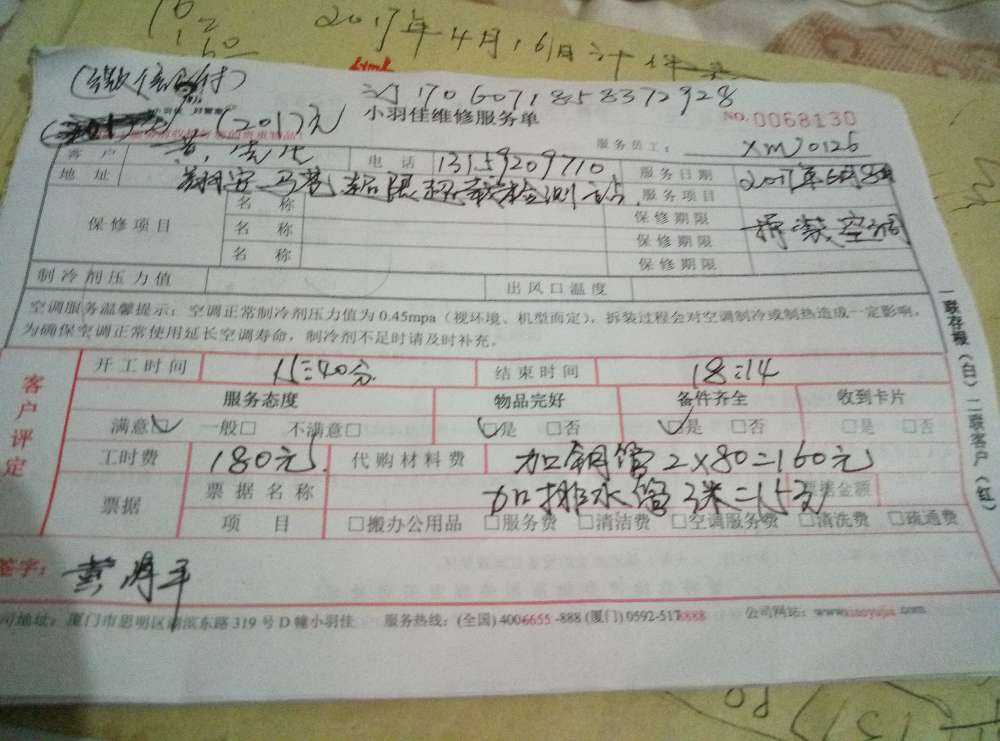 16
2
160
2017年4月16日计件
(微信支付)
1706071858372928
(201元)
小羽佳维修服务单
NO.0068130
服务员工: XM70126
客户 黄 电话 13159209710 服务日期 2017年6月8日
地址 翔安马巷超限超载检测站 服务项目 拆装空调
保修项目
名称 保修期限
名称 保修期限
名称 保修期限
制冷剂压力值 出风口温度
空调服务温馨提示:空调正常制冷剂压力值为0.45mpa(视环境、机型而定),拆装过程会对空调制冷或制热造成一定影响。
为确保空调正常使用延长空调寿命,制冷剂不足时请及时补充。
一联存根(白)二联客户(红)
客户评定
开工时间 15:40分 结束时间 18:14
服务态度 物品完好 备件齐全 收到卡片
满意☑ 一般□ 不满意□ ☑是 □否 ☑是 □否 □是 □否
工时费 180元 代购材料费 加铜管2×80=160元
票据 票据名称 加排水管3米=15元 票据金额
项目 □搬办公用品 □服务费 □清洁费 □空调服务费 □清洗费 □疏通费
签字:
司地址:厦门市思明区湖滨东路319号D幢小羽佳 服务热线:(全国)4006655-888(厦门)0592-5178888 公司网站:www.xiaoyujia.com